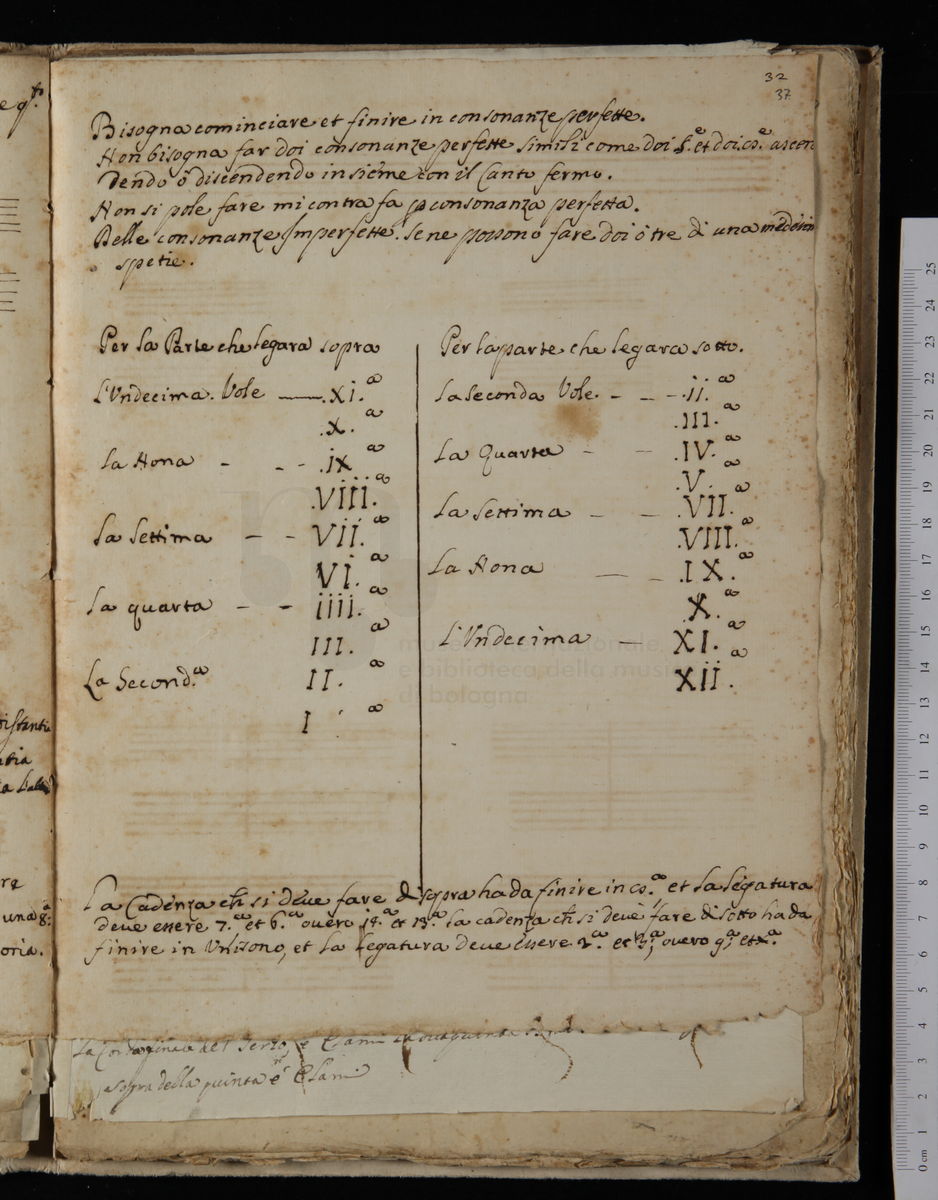 32
37
Bisogna cominciare et finire in consonanze perfette.
Non bisogna far doi consonanze perfette simili come doi 5.e et doi 8.e ascen
dendo ò discendendo insieme con il Canto fermo.
Non si pole fare mi contra fa p consonanza perfetta.
Delle consonanze Imperfette. se ne possono fare doi ò tre di una medesim
spetie.
Per la Parte che legara sopra
L'Undecima. Vole .XI.a
.X.a
La Nona - - - .IX a
.VIII.a
La Settima - - VII.a
VI.a
La quarta - - IIII.a
III.a
La Second.a II.a
I a
Per la parte che legara sotto.
La Seconda Vole. - - - .II.a
.III.a
La Quarta - - .IV.a
.V.a
La Settima - - .VII.a
.VIII.a
La Nona - - .IX.a
.X.a
L'Undecima - XI.a
XII.a
La Cadenza ch si deve fare di sopra ha da finire in et la legatura
deve essere 7.a et 6.a overo 14.a et 13.a la cadenza ch si deve fare di sotto ha da
finire in Unisono, et la legatura deve essere 2.a et 3.a overo 9.a et x.a
La Corda finale del Terzo, è Elami la sua quinta
sopra della quinta è Elami
museo internazionale
e biblioteca della musica
di bologna
eq.to
distantia
una 8.a
oria.
0 cm 1 2 3 4 5 6 7 8 9 10 11 12 13 14 15 16 17 18 19 20 21 22 23 24 25